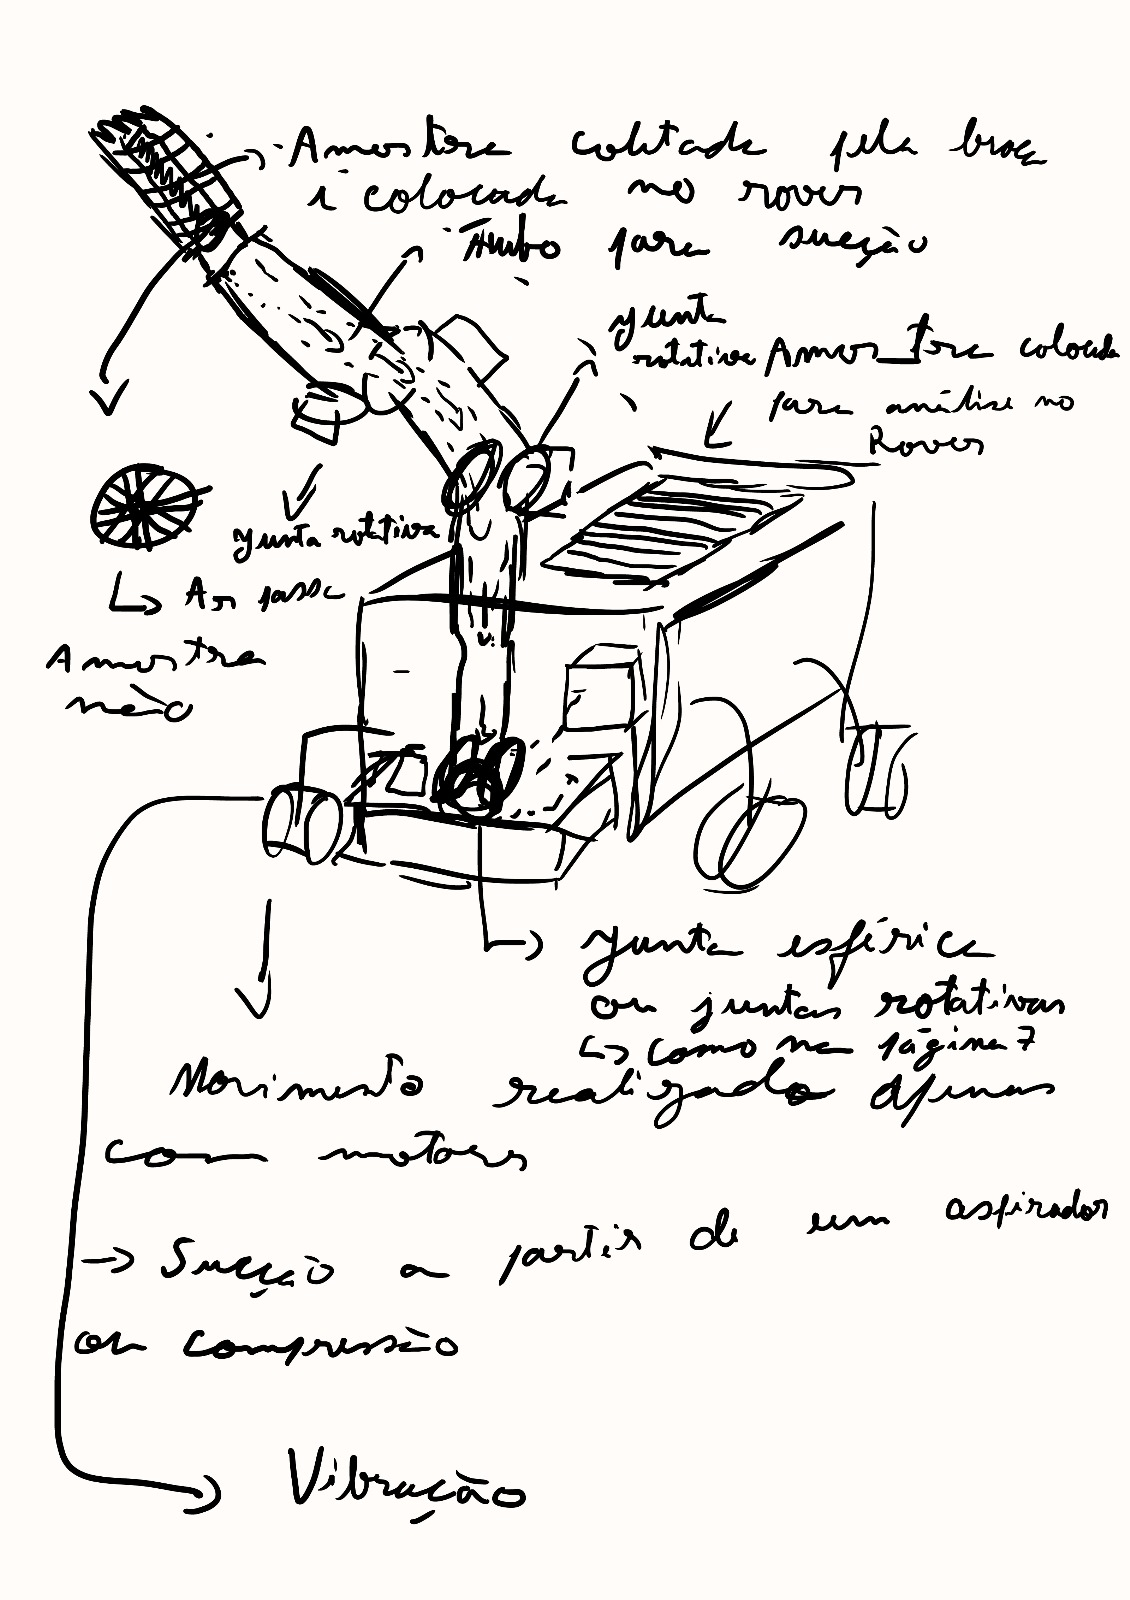 Amostra coletada pela broca
e colocada no rover
Tubo para sucção
junta
rotativa
Amostra colocada
para análise no
Rover
junta rotativa
Ar passa
Amostra
não
junta esférica
ou juntas rotativas
↳ como na página 7
Movimento realizado apenas
com motores
→ Sucção a partir de um aspirador
ou compressão
Vibração